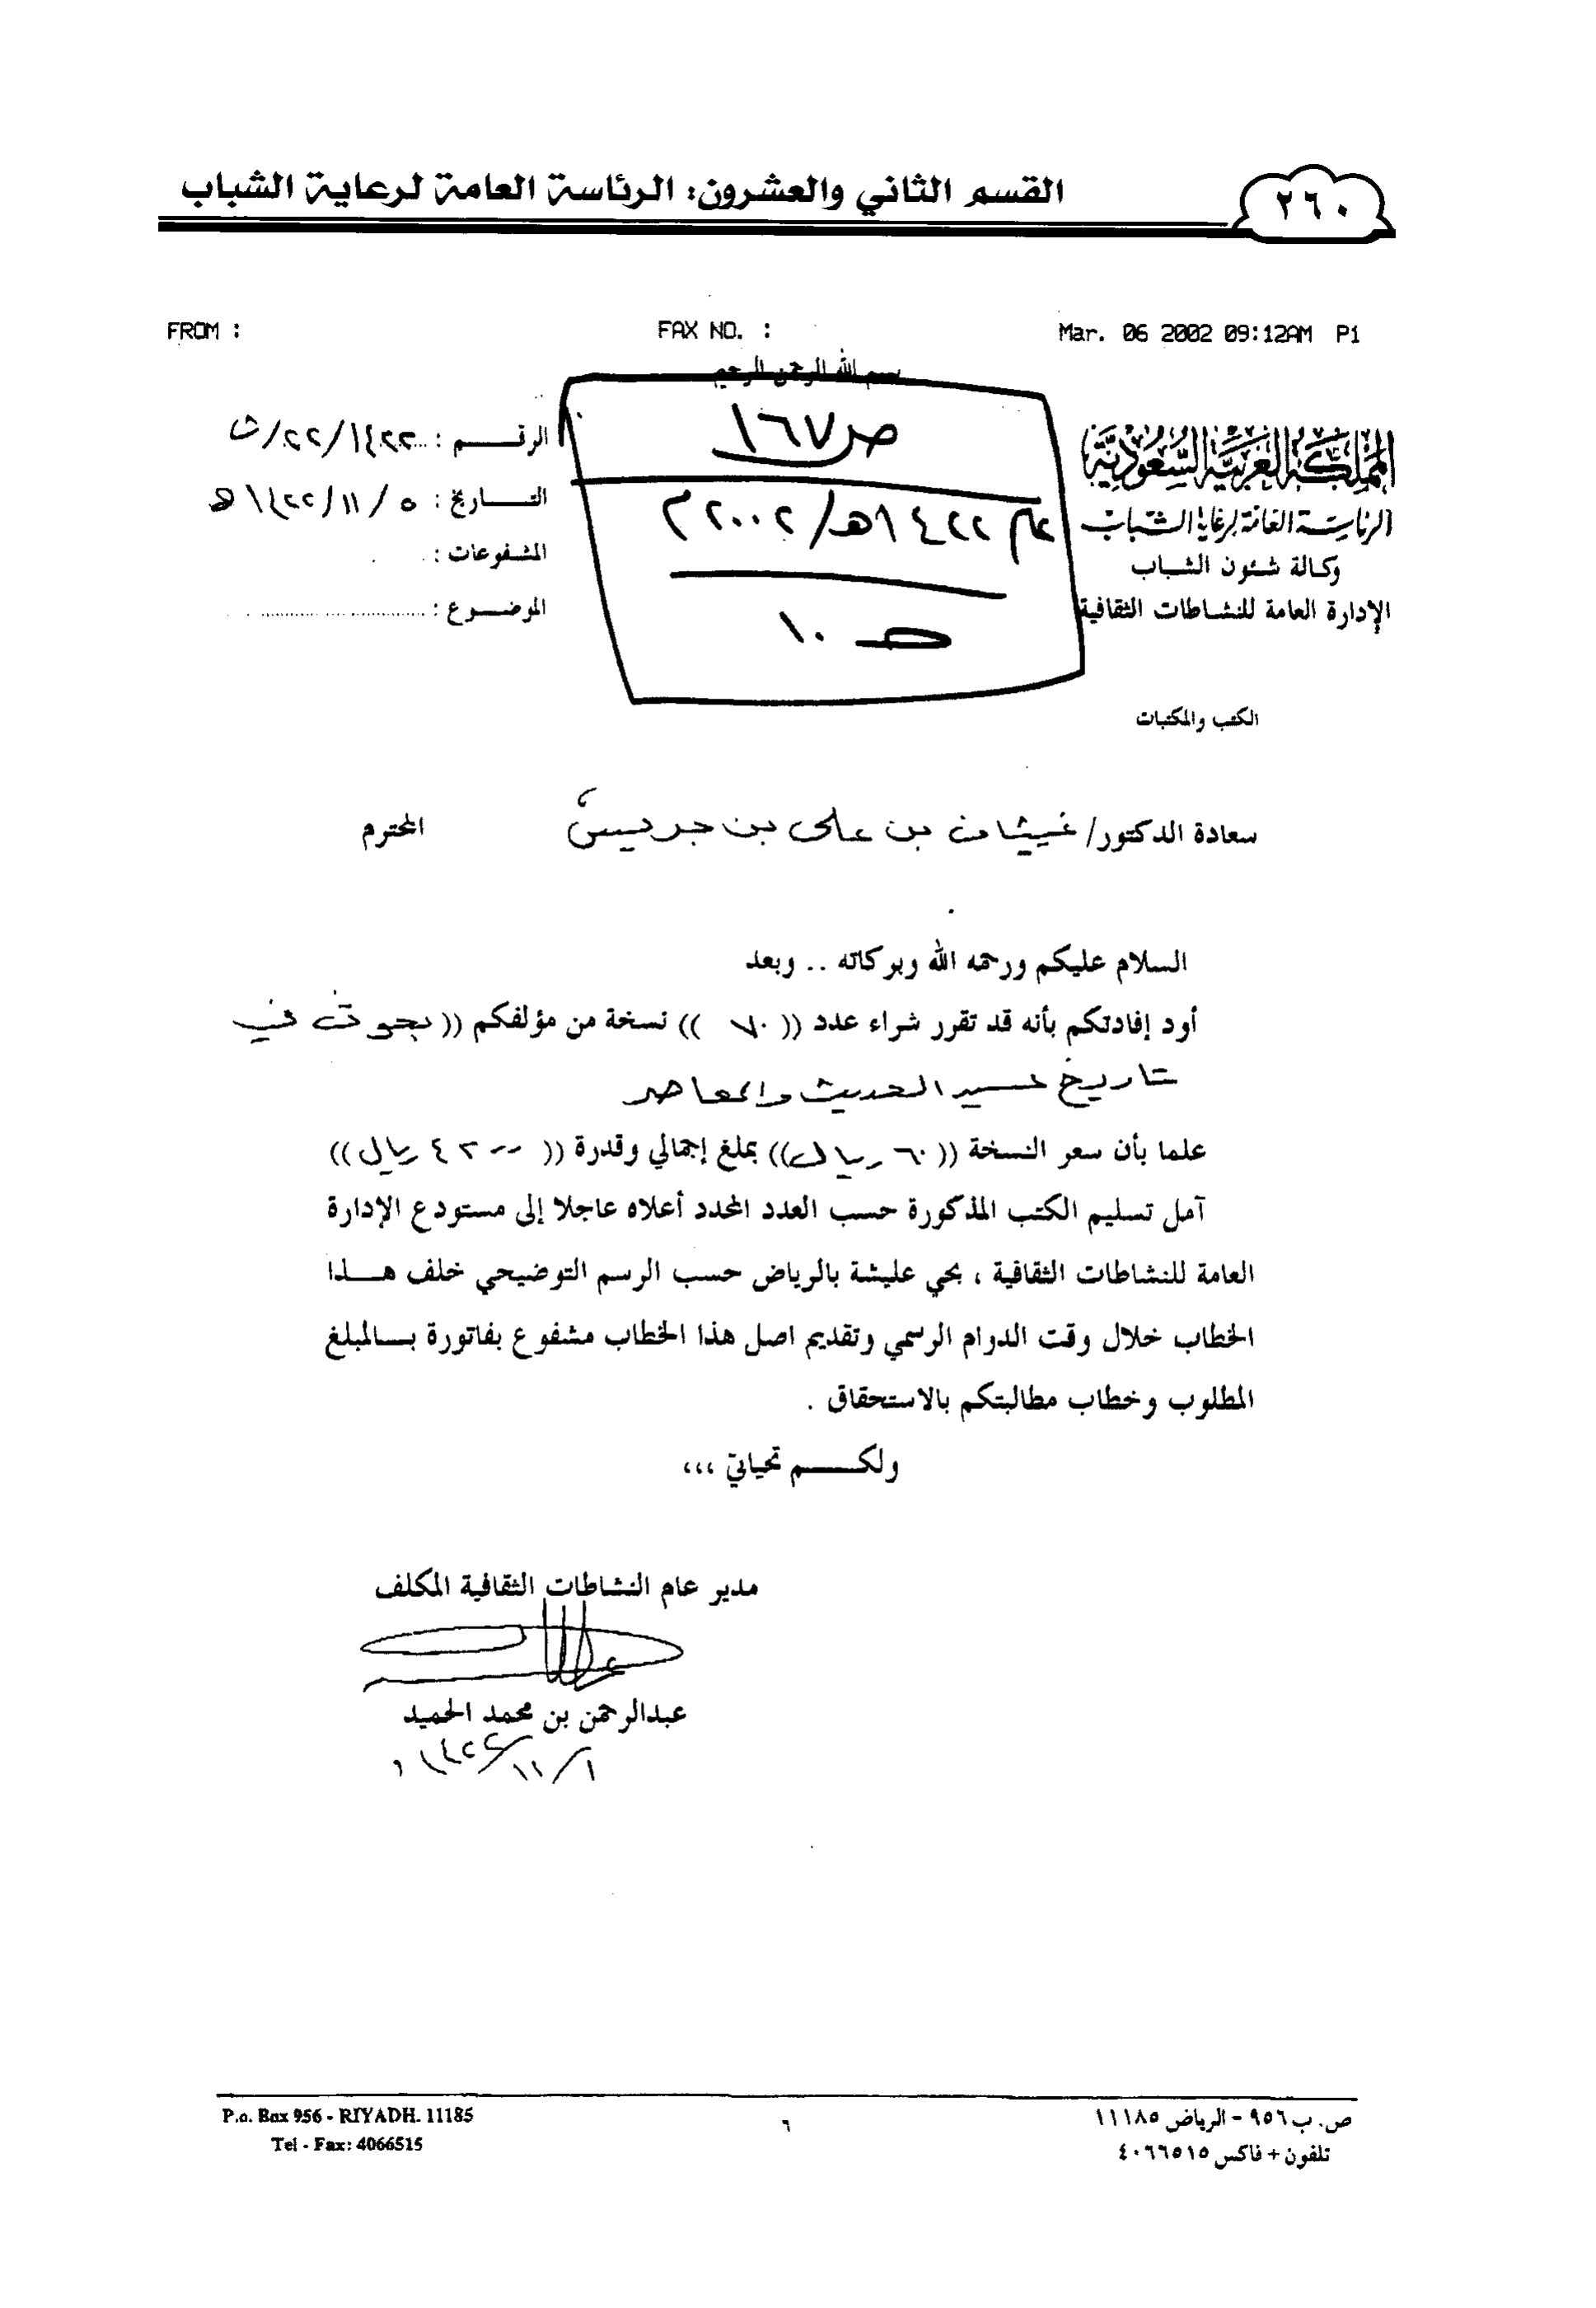 ٢٦٠
القسم الثاني والعشرون: الرئاسة العامة لرعاية الشباب
FROM :
FAX NO. :
Mar. 06 2002 09:12AM P1
بسم الله الرحمن الرحيم
المملكة العربية السعودية
الرئاسة العامة لرعاية الشباب
وكالة شئون الشباب
الإدارة العامة للنشاطات الثقافية
ص ١٦٧
عام ١٤٢٢هـ/٢٠٠٢م
حـ ١٠
الرقـــم : ١٤٢٢/٢٢/ث
التــاريخ : ٥ / ١١/ ١٤٢٢هـ
المشفوعات :
الموضــوع :
الكتب والمكتبات
سعادة الدكتور/ غيثان بن علي بن جريس المحترم
السلام عليكم ورحمه الله وبركاته .. وبعد
أود إفادتكم بأنه قد تقرر شراء عدد (( ٧٠ )) نسخة من مؤلفكم (( بحوث في
تاريخ عسير الحديث والمعاصر
علما بأن سعر النسخة (( ٦٠ ريال )) بملغ إجمالي وقدرة (( ٤٢٠٠ ريال ))
آمل تسليم الكتب المذكورة حسب العدد المحدد أعلاه عاجلا إلى مستودع الإدارة
العامة للنشاطات الثقافية ، بحي عليشة بالرياض حسب الرسم التوضيحي خلف هـــذا
الخطاب خلال وقت الدوام الرسمي وتقديم اصل هذا الخطاب مشفوع بفاتورة بـــالمبلغ
المطلوب وخطاب مطالبتكم بالاستحقاق .
ولكــــم تحياتي ،،،
مدير عام النشاطات الثقافية المكلف
عبدالرحمن بن محمد الحميد
١/ ١١/ ١٤٢٢
ص. ب ٩٥٦ - الرياض ١١١٨٥
تلفون + فاكس ٤٠٦٦٥١٥
٦
P.o. Box 956 - RIYADH. 11185
Tel - Fax: 4066515